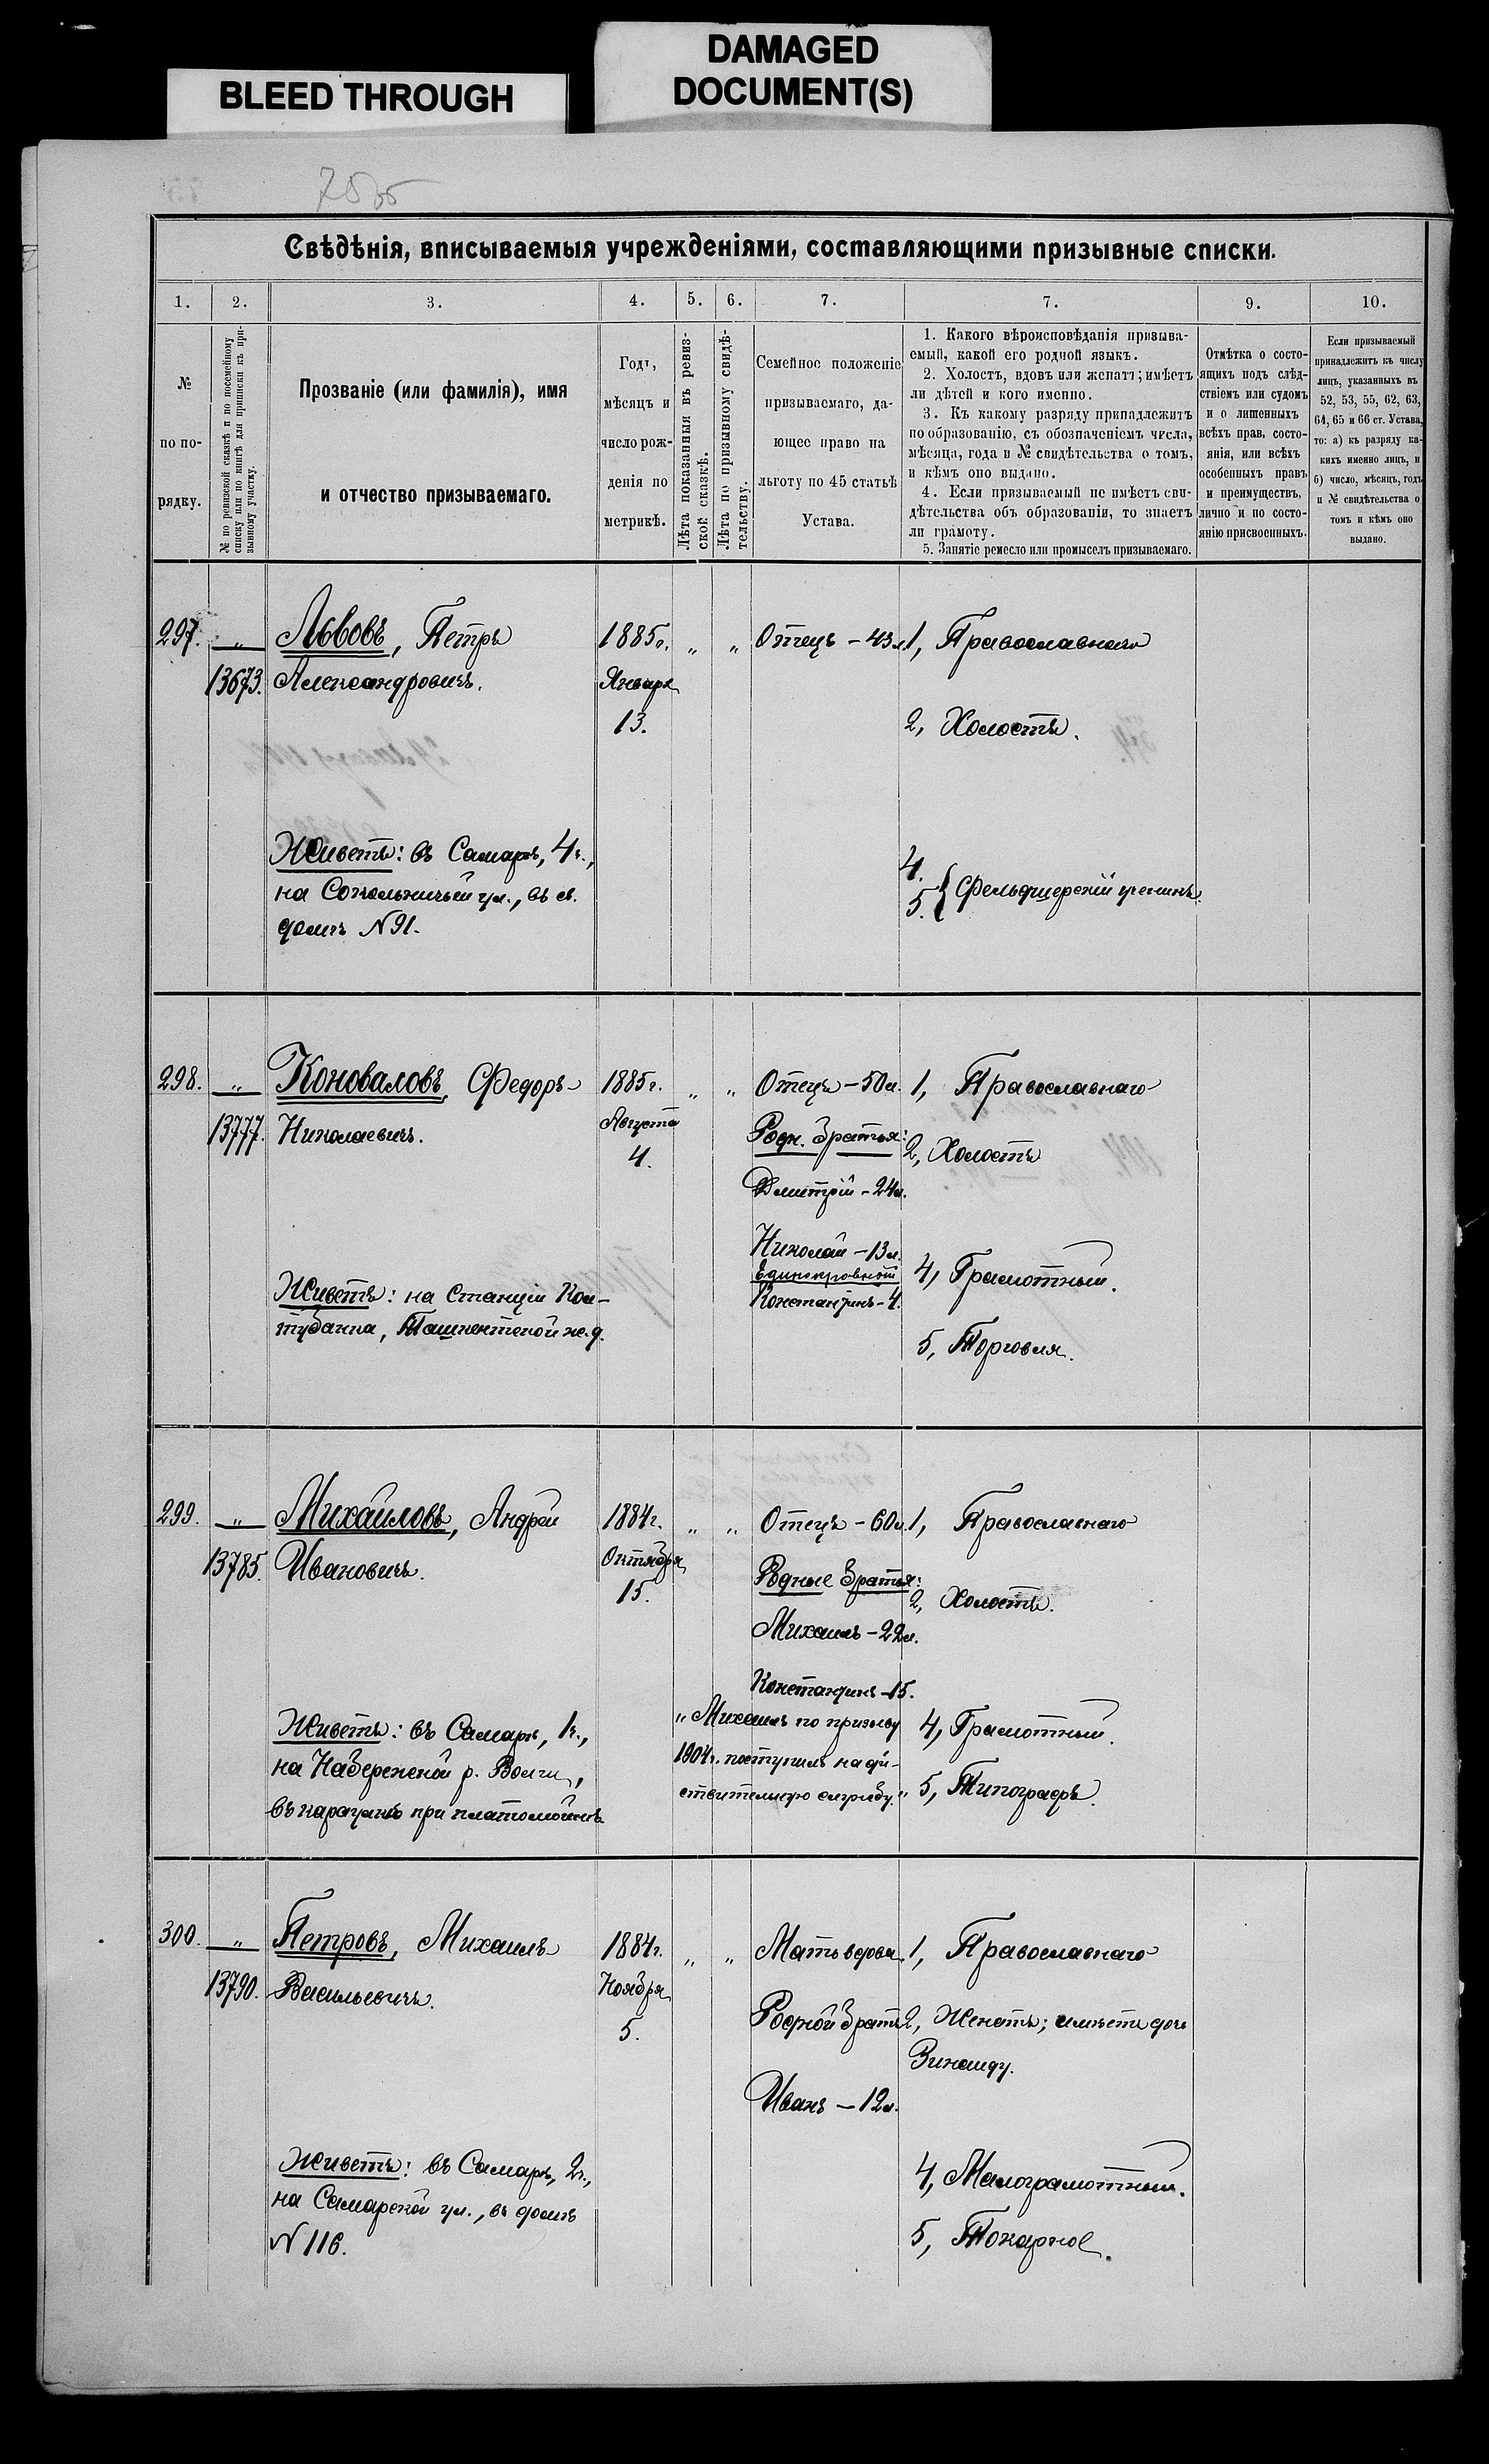 BLEED THROUGH
DAMAGED
DOCUMENT(S)
Свѣдѣнія, вписываемыя учрежденіями, составляющими призывные списки.
1. 2. 3. 4. 5. 6. 7. 7. 9. 10.
№
по по-
рядку.
№ по ревизской сказкѣ и по посемейному
списку или по книгѣ для приписки къ при-
зывному участку.
Прозваніе (или фамилія), имя
и отчество призываемаго.
Годъ,
мѣсяцъ и
число рож-
денія по
метрикѣ.
Лѣта показанныя въ ревиз-
ской сказкѣ.
Лѣта по призывному свидѣ-
тельству.
Семейное положеніе
призываемаго, да-
ющее право на
льготу по 45 статьѣ
Устава.
1. Какого вѣроисповѣданія призыва-
емый, какой его родной языкъ.
2. Холостъ, вдовъ или женатъ; имѣетъ
ли дѣтей и кого именно.
3. Къ какому разряду принадлежитъ
по образованію, съ обозначеніемъ числа,
мѣсяца, года и № свидѣтельства о томъ,
и кѣмъ оно выдано.
4. Если призываемый не имѣетъ сви-
дѣтельства объ образованіи, то знаетъ
ли грамоту.
5. Занятіе ремесло или промыселъ призываемаго.
Отмѣтка о состо-
ящихъ подъ слѣд-
ствіемъ или судомъ
и о лишенныхъ
всѣхъ прав. состо-
янія, или всѣхъ
особенныхъ правъ
и преимуществъ,
лично и по состо-
янію присвоенныхъ.
Если призываемый
принадлежитъ къ числу
лицъ, указанныхъ въ
52, 53, 55, 62, 63,
64, 65 и 66 ст. Устава,
то: а) къ разряду ка-
кихъ именно лицъ, и
б) число, мѣсяцъ, годъ
и № свидѣтельства о
томъ и кѣмъ оно
выдано.
297. „ Львовъ, Петръ 1885г. „ „ Отецъ – 43л. 1, Православнаго
13673. Александровичъ. Января
13. 2, Холостъ.
Живетъ: въ Самарѣ, 4ч.,
на Сокольничьей ул., въ св.
домѣ N 91.
4.
5. { Фельдшерскій ученикъ.
298. „ Коноваловъ, Федоръ 1885г. „ „ Отецъ – 50л. 1, Православнаго
13777. Николаевичъ. Августа Родн. братья:
4. 2, Холостъ
Дмитрій – 24л.
Николай – 13л.
Единокровной
Константинъ – 4.
4, Грамотный.
5, Торговля.
Живетъ: на станціи Кол-
тубанка, Ташкентской ж. д.
299. „ Михайловъ, Андрей 1884г. „ „ Отецъ – 60л. 1, Православнаго
13785. Ивановичъ. Октября Родные братья:
15. 2, Холостъ.
Михаилъ – 22л.
Константинъ – 15.
„Михаилъ по призыву
1904г. поступилъ на дѣй-
ствительную службу.“
4, Грамотный.
5, Типографъ.
Живетъ: въ Самарѣ, 1ч.,
на Набережной р. Волги,
въ караулкѣ при платомойнѣ.
300. „ Петровъ, Михаилъ 1884г. „ „ Мать вдова. 1, Православнаго
13790. Васильевичъ. Ноября
5. Родной братъ 2, Женатъ; имѣетъ дочь
Зинаиду.
Иванъ – 12л.
4, Малограмотный.
5, Токарное.
Живетъ: въ Самарѣ, 2ч.,
на Самарской ул., въ домѣ
N 116.